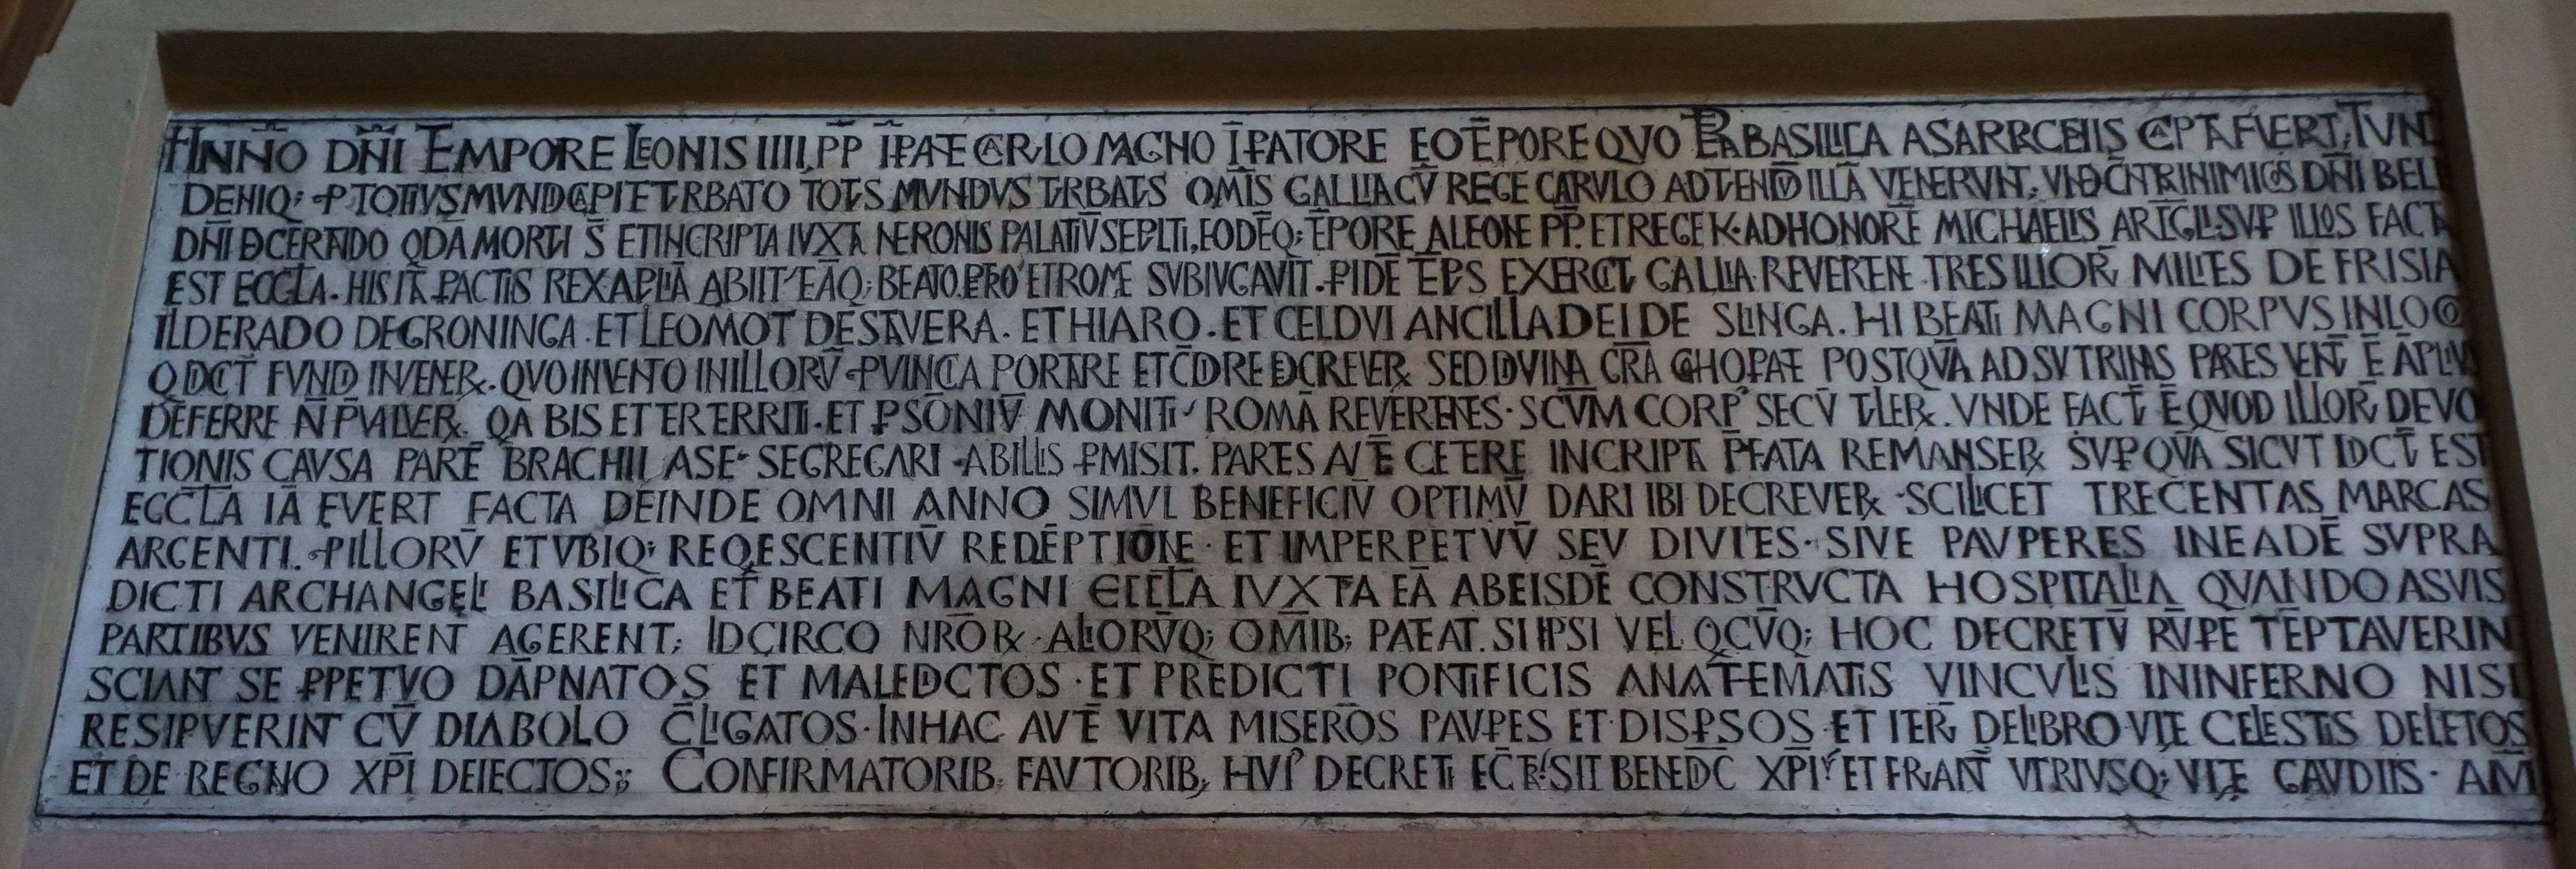 IN NÕE DÑI TEMPORE LEONIS IIII, PP̄ IMPERANTE CARLO MAGNO ĪPATORE EO TĒPORE QVO BASILICA A SARRACENIS CAPTA FVERIT; TVN
DENIQ; P TOTIVS MVNDI CAPITE TVRBATO TOTVS MVNDVS TVRBATVS OM̄IS GALLIA CV̄ REGE CARVLO AD VENERVNT; INIMICOS DÑI BEL
DÑI DECERTANDO QDĀ MORTVI S̄ ET IN CRIPTA IVXTA NERONIS PALATIV̄ SEPVLTI, EODĒQ; TĒPORE A LEONE PP̄. ET REGE K· AD HONORĒ MICHAELIS ARCH̄GLI· SVP ILLOS FACTA
EST ECCL̄A. HIS ITA PACTIS REX APVLIĀ ABIIT EĀQ; BEATO PETRO ET ROME SVBIVGAVIT. EXERCIT GALLIA REVERENTE TRES ILLOR̄ MILITES DE FRISIA
ILDERADO DE GRONINGA· ET LEOMOT DE STAVERA. ET HIARO. ET CELDVI ANCILLA DEI DE SLINGA. HI BEATI MAGNI CORPVS IN LOCO
Q DICT̄ FVNDI INVENER̄. QVO INVENTO IN ILLORV̄ PVINCIA PORTARE ET CŌDRE DECREVER̄ SED DIVINA GRĀ COHOPANTE POSTQVĀ AD SVTRINAS PARTES
DEFERRE N̄ P̄VALVER̄. QA BIS ET TER TERRITI· ET P SŌNIV̄ MONITI ROMĀ REVERTENTES· SC̄VM CORP' SECV̄ TVLER̄. VNDE FACT̄ Ē QVOD ILLOR̄ DEVO
TIONIS CAVSA PARTĒ BRACHII A SE SEGREGARI AB ILLIS PMISIT. PARTES AVTĒ CETERE IN CRIPTA P̄FATA REMANSER̄ SVP QVĀ SICVT DICT̄ EST
ECCL̄A IĀ FVERT FACTA DEINDE OMNI ANNO SIMVL BENEFICIV̄ OPTIMV̄ DARI IBI DECREVER̄· SCILICET TRECENTAS MARCAS
ARGENTI. P ILLORV̄ ET VBIQ; REQESCENTIV̄ REDĒPTIONE· ET IMPERPETVV̄ SEV DIVITES· SIVE PAVPERES IN EADĒ SVPRA
DICTI ARCHANGELI BASILICA ET BEATI MAGNI ECCL̄A IVXTA EĀ AB EISDĒ CONSTRVCTA HOSPITALIA QVANDO A SVIS
PARTIBVS VENIRENT AGERENT; IDCIRCO NRŌR̄· ALIORV̄Q; OM̄IB; PATEAT. SI IPSI VEL QCV̄Q; HOC DECRETV̄ RVPE TĒPTAVERIN
SCIANT SE PPETVO DĀPNATOS ET MALEDICTOS· ET PREDICTI PONTIFICIS ANATEMATIS VINCVLIS IN INFERNO NISI
RESIPVERINT CV̄ DIABOLO C̄LIGATOS· IN HAC AVTĒ VITA MISEROS PAVPES ET DISPSOS ET ITER̄ DE LIBRO VITE CELESTIS DELETOS
ET DE REGNO XP̄I DEIECTOS; CONFIRMATORIB; FAVTORIB; HVI' DECRETI SIT BENEDC̄ XP̄I ET VTRIVSQ; VITE GAVDIIS· AM̄